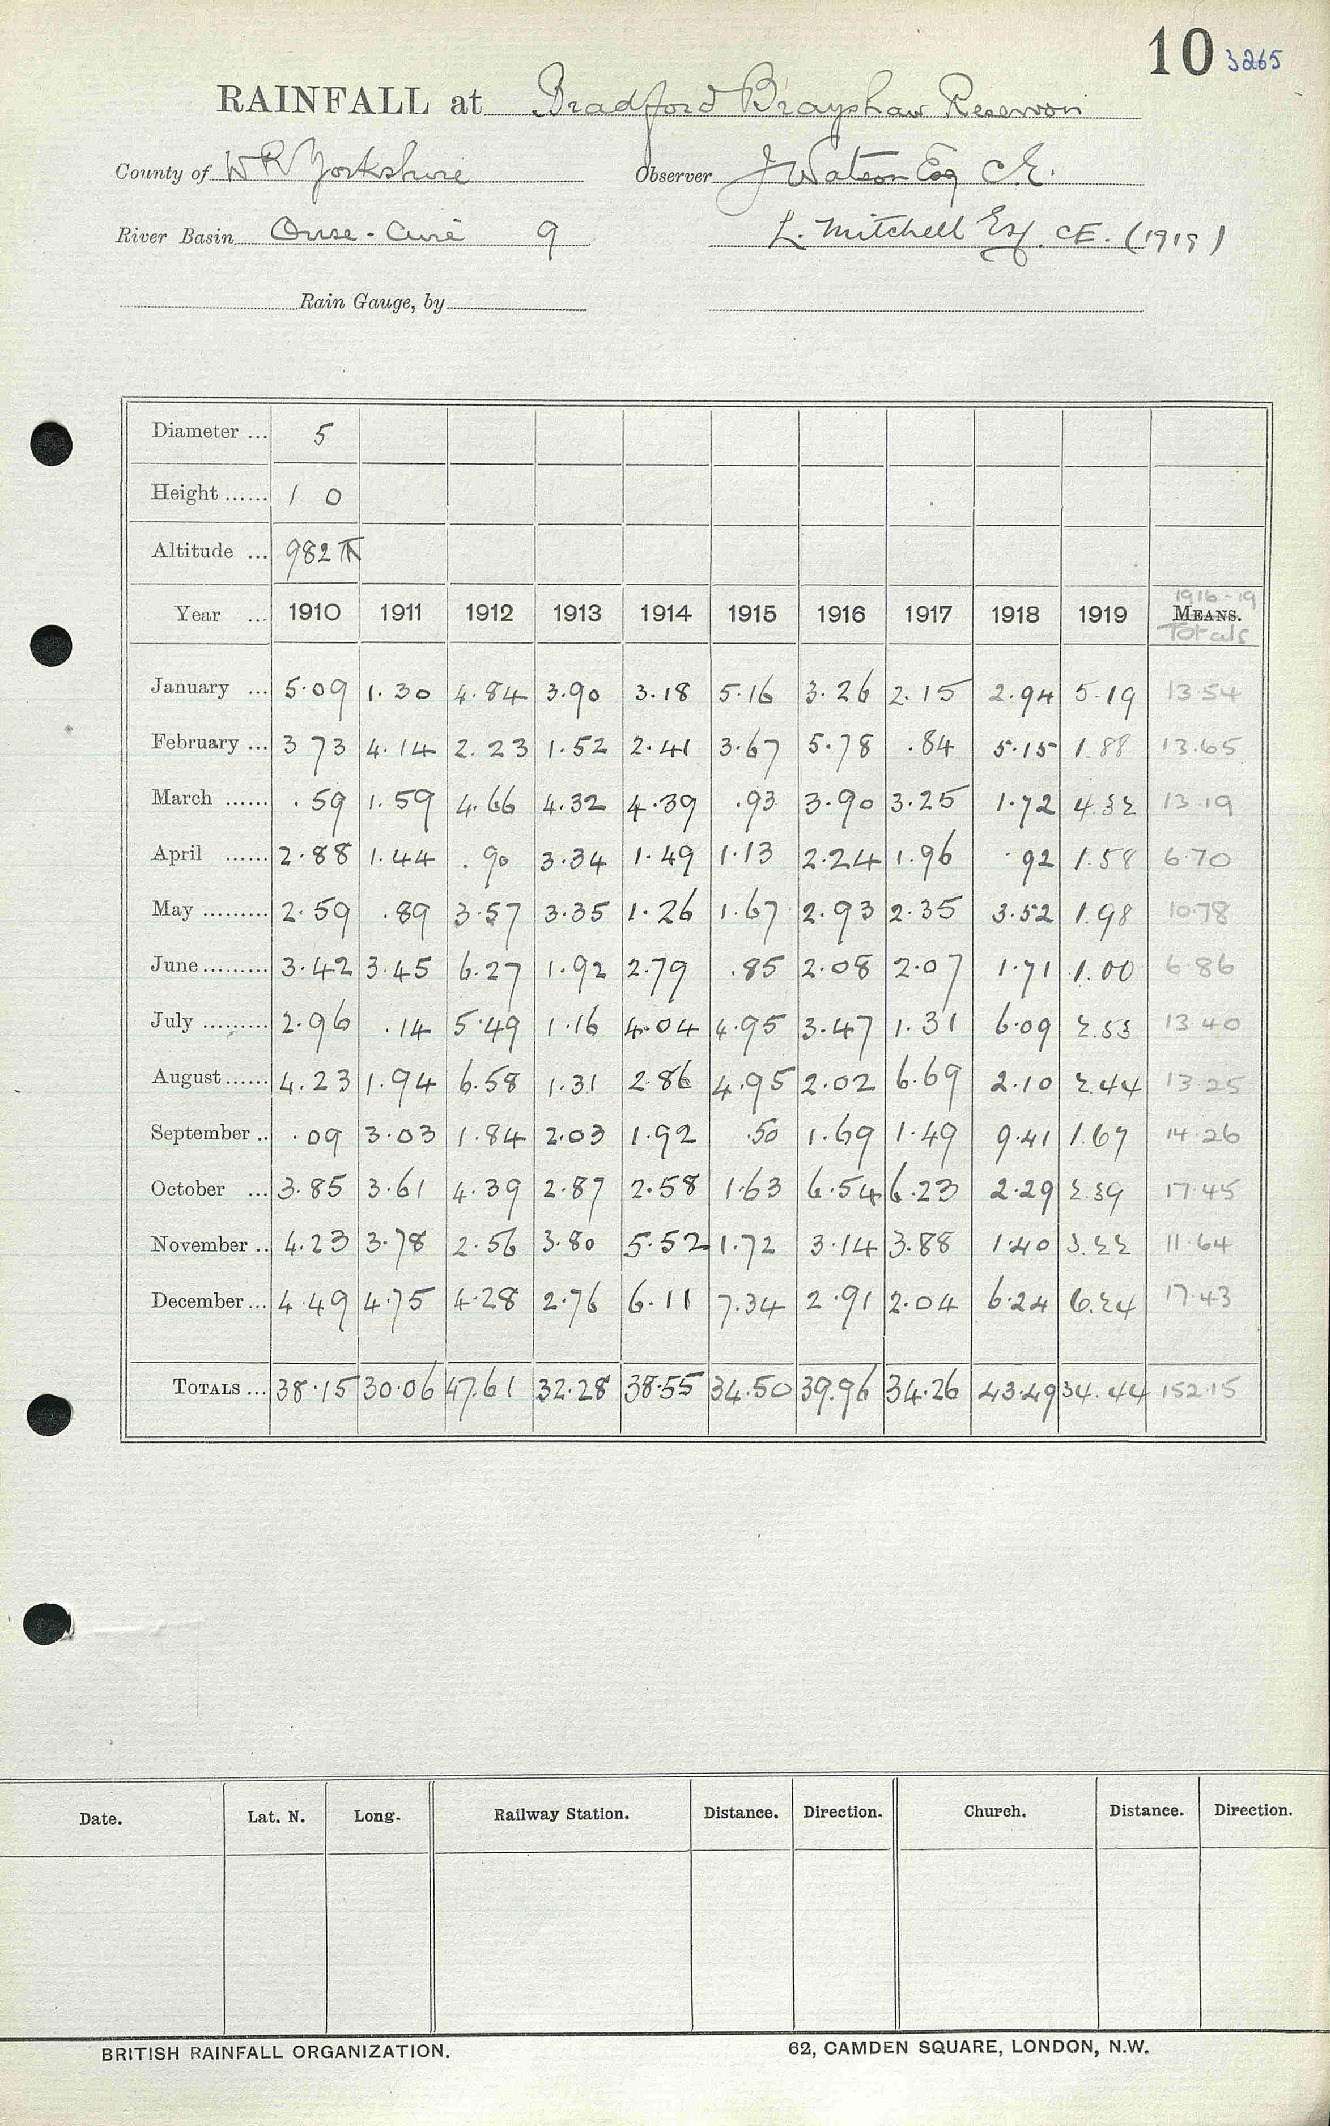 10 3265
RAINFALL at Bradford Brayshaw Reservoir
County of W R Yorkshire Observer J Watson Esq C.E.
River Basin Ouse - Aire 9 L. Mitchell Esq. CE. (1919)
Rain Gauge, by
Diameter ... 5
Height ...... 1 0
Altitude ... 982 ft
1916-19
Year ... 1910 1911 1912 1913 1914 1915 1916 1917 1918 1919 MEANS.
Totals
January ... 5.09 1.30 4.84 3.90 3.18 5.16 3.26 2.15 2.94 5.19 13.54
February ... 3 73 4.14 2.23 1.52 2.41 3.67 5.78 .84 5.15 1.88 13.65
March ...... .59 1.59 4.66 4.32 4.39 .93 3.90 3.25 1.72 4.32 13 19
April ...... 2.88 1.44 .90 3.34 1.49 1.13 2.24 1.96 .92 1.58 6.70
May ......... 2.59 .89 3.57 3.35 1.26 1.67 2.93 2.35 3.52 1.98 10.78
June ......... 3.42 3.45 6.27 1.92 2.79 .85 2.08 2.07 1.71 1.00 6.86
July ......... 2.96 .14 5.49 1.16 4.04 4.95 3.47 1.31 6.09 2.53 13 40
August ...... 4.23 1.94 6.58 1.31 2.86 4.95 2.02 6.69 2.10 2.44 13.25
September .. .09 3.03 1.84 2.03 1.92 .50 1.69 1.49 9.41 1.67 14.26
October ... 3.85 3.61 4.39 2.87 2.58 1.63 6.54 6.23 2.29 2.39 17.45
November .. 4.23 3.78 2.56 3.80 5.52 1.72 3.14 3.88 1.40 3.22 11.64
December ... 4 49 4.75 4.28 2.76 6.11 7.34 2.91 2.04 6.24 6.24 17.43
TOTALS ... 38.15 30.06 47.61 32.28 38.55 34.50 39.96 34.26 43.49 34.44 152.15
Date. Lat. N. Long. Railway Station. Distance. Direction. Church. Distance. Direction.
BRITISH RAINFALL ORGANIZATION. 62, CAMDEN SQUARE, LONDON, N.W.